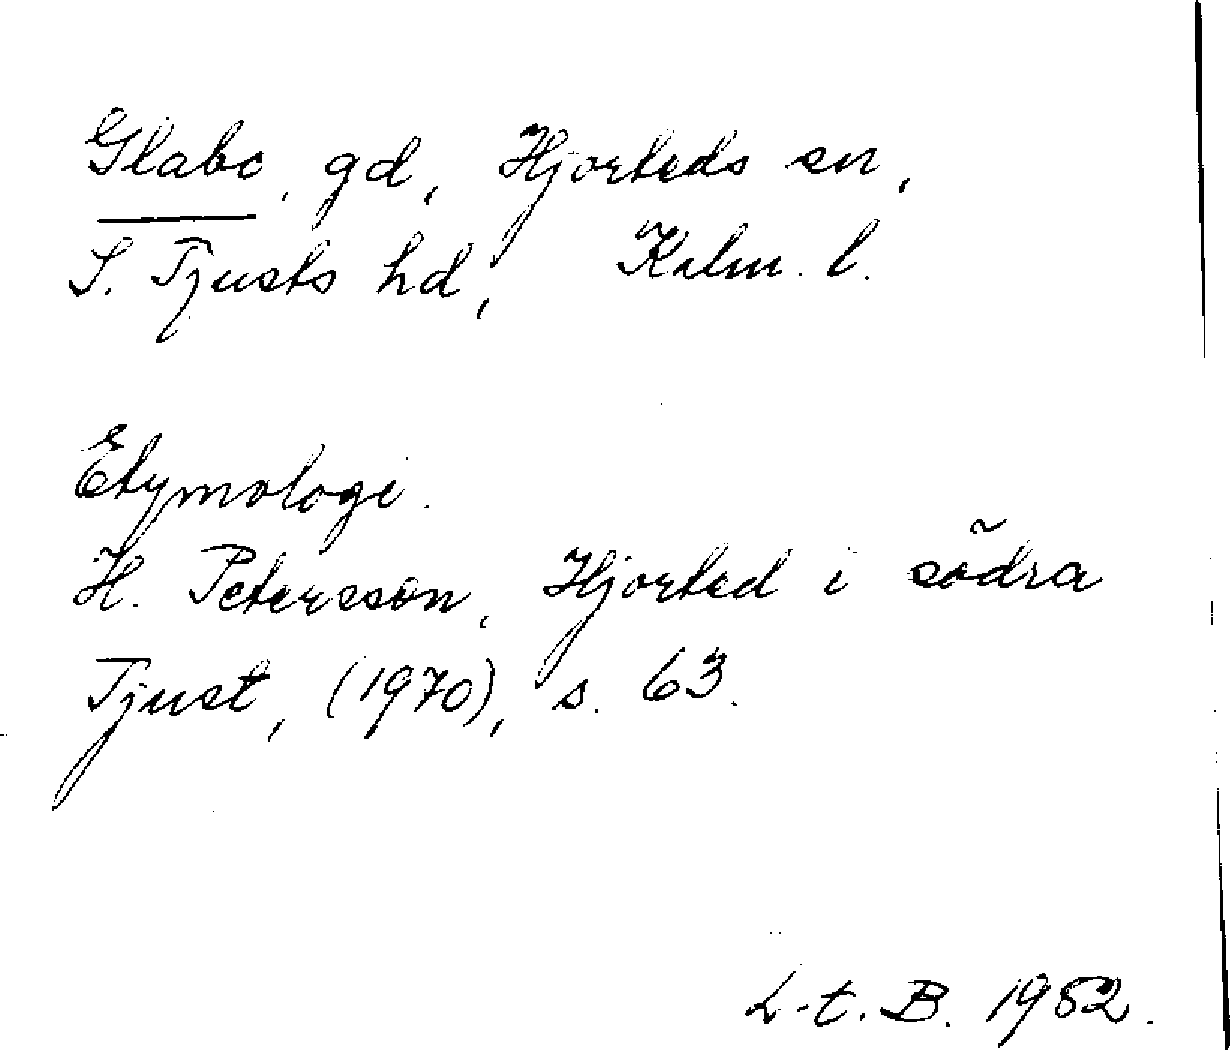 Glabo, gd, Hjorteds sn,
S. Tjusts hd, Kalm. l.
Etymologi.
H. Petersson, Hjorted i södra
Tjust, (1970), s. 63.
L-t. B. 1982.